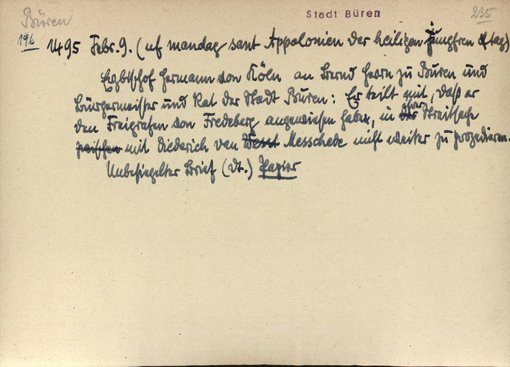 Büren
Stadt Büren
235
196
1495 Febr. 9. (uf mandag sant Appolonien der heiligen Jungfrau tag)
Erzbischof Hermann von Köln an Bernd Herrn zu Büren und
Bürgermeister und Rat der Stadt Büren: Er teilt mit, daß er
den Freigrafen von Fredeberg angewiesen habe, in der Streitsache
zwischen mit Diederich van Messchede nicht weiter zu prozedieren.
Unbesiegelter Brief (dt.) Papier